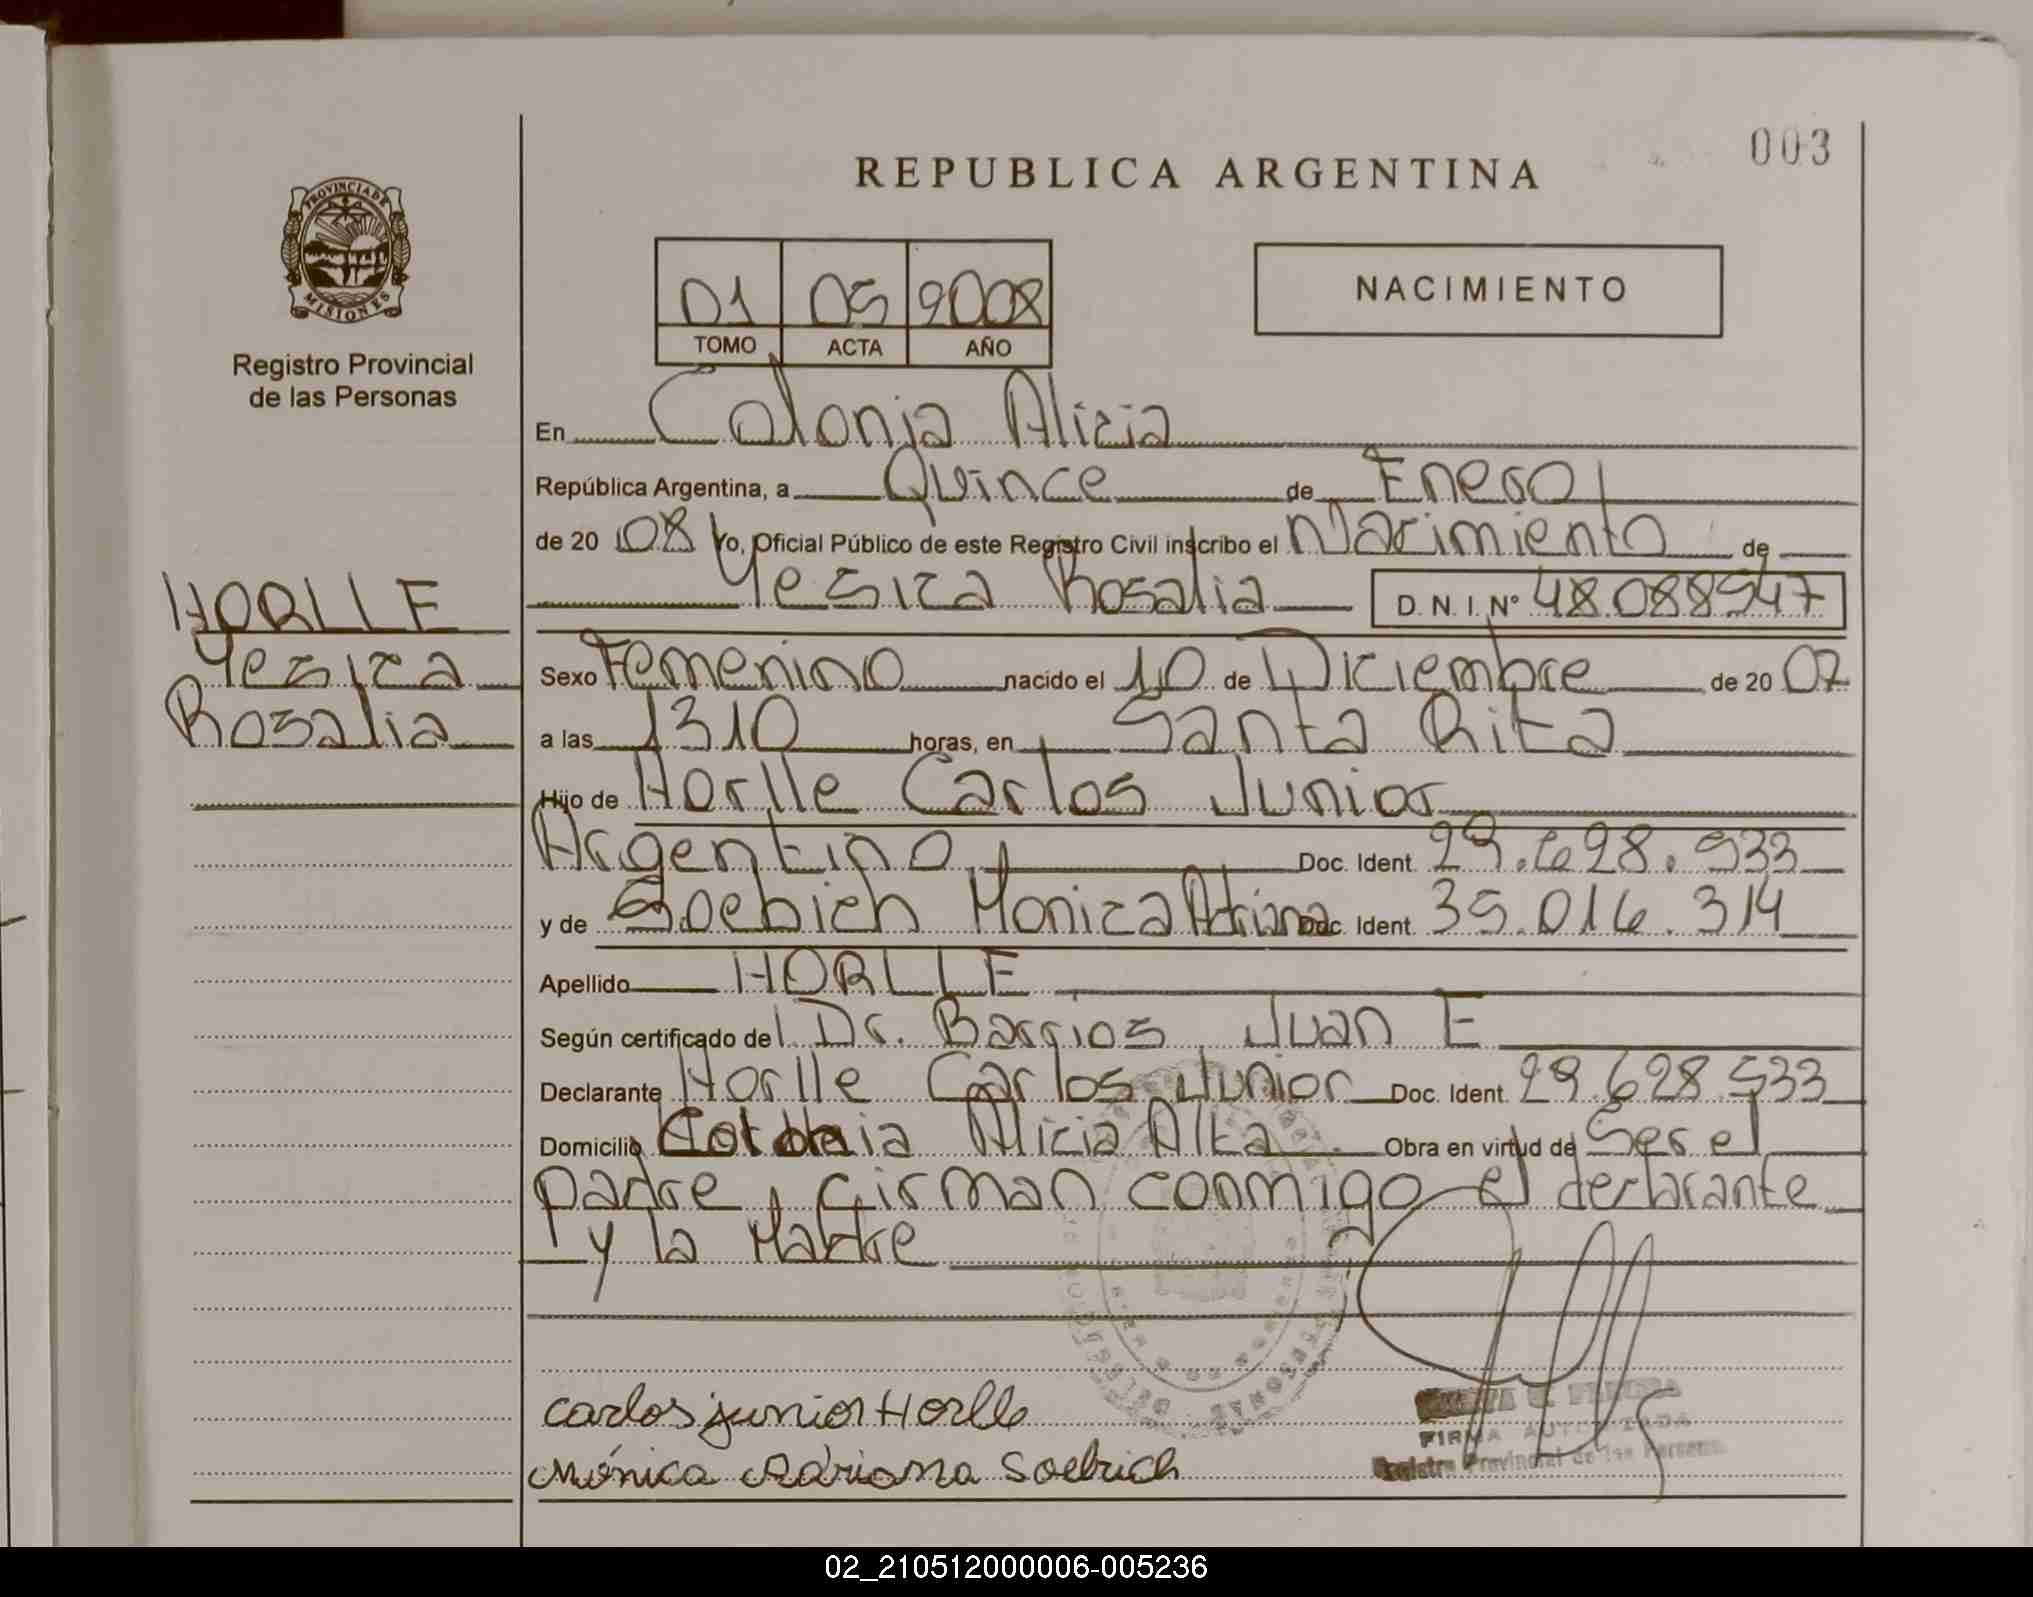 003
REPUBLICA ARGENTINA
PROVINCIA DE
MISIONES
Registro Provincial
de las Personas
01 05 2008
TOMO ACTA AÑO
NACIMIENTO
En Colonia Alicia
República Argentina, a Quince de Enero
de 20 08 Yo, Oficial Público de este Registro Civil inscribo el Nacimiento de
Yesica Rosalia D.N.I. Nº 48.088.547
HORLLE
Yesica
Rosalia
Sexo Femenino nacido el 10 de Diciembre de 20 07
a las 1310 horas, en Santa Rita
Hijo de Horlle Carlos Junior
Argentino, Doc. Ident. 29.628.533
y de Soebich Monica Adriana Doc. Ident. 35.016.314
Apellido HORLLE
Según certificado del Dr. Barrios Juan E
Declarante Horlle Carlos Junior Doc. Ident. 29.628.533
Domicilio Colonia Alicia Alta Obra en virtud de Ser el
padre, firman conmigo el declarante
y la Madre
carlos junior Horlle
Mónica Adriana Soebrich
FIRMA AUTORIZADA
Registro Provincial de las Personas
02_210512000006-005236